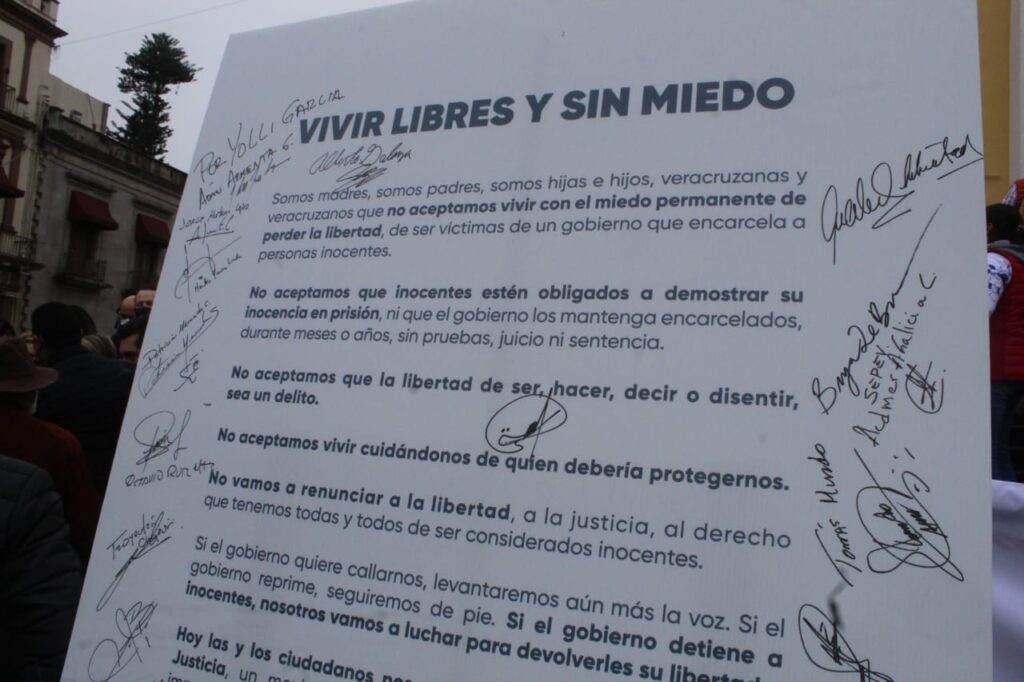 VIVIR LIBRES Y SIN MIEDO
POR YOLLI GARCIA
Somos madres, somos padres, somos hijas e hijos, veracruzanas y
veracruzanos que no aceptamos vivir con el miedo permanente de
perder la libertad, de ser víctimas de un gobierno que encarcela a
personas inocentes.
No aceptamos que inocentes estén obligados a demostrar su
inocencia en prisión, ni que el gobierno los mantenga encarcelados,
durante meses o años, sin pruebas, juicio ni sentencia.
No aceptamos que la libertad de ser, hacer, decir o disentir,
sea un delito.
No aceptamos vivir cuidándonos de quien debería protegernos.
No vamos a renunciar a la libertad, a la justicia, al derecho
que tenemos todas y todos de ser considerados inocentes.
Si el gobierno quiere callarnos, levantaremos aún más la voz. Si el
gobierno reprime, seguiremos de pie. Si el gobierno detiene a
inocentes, nosotros vamos a luchar para devolverles su libertad
Hoy las y los ciudadanos
Justicia, un
OCTAVIO RUIZ
SEPEV
Tomás Mundo